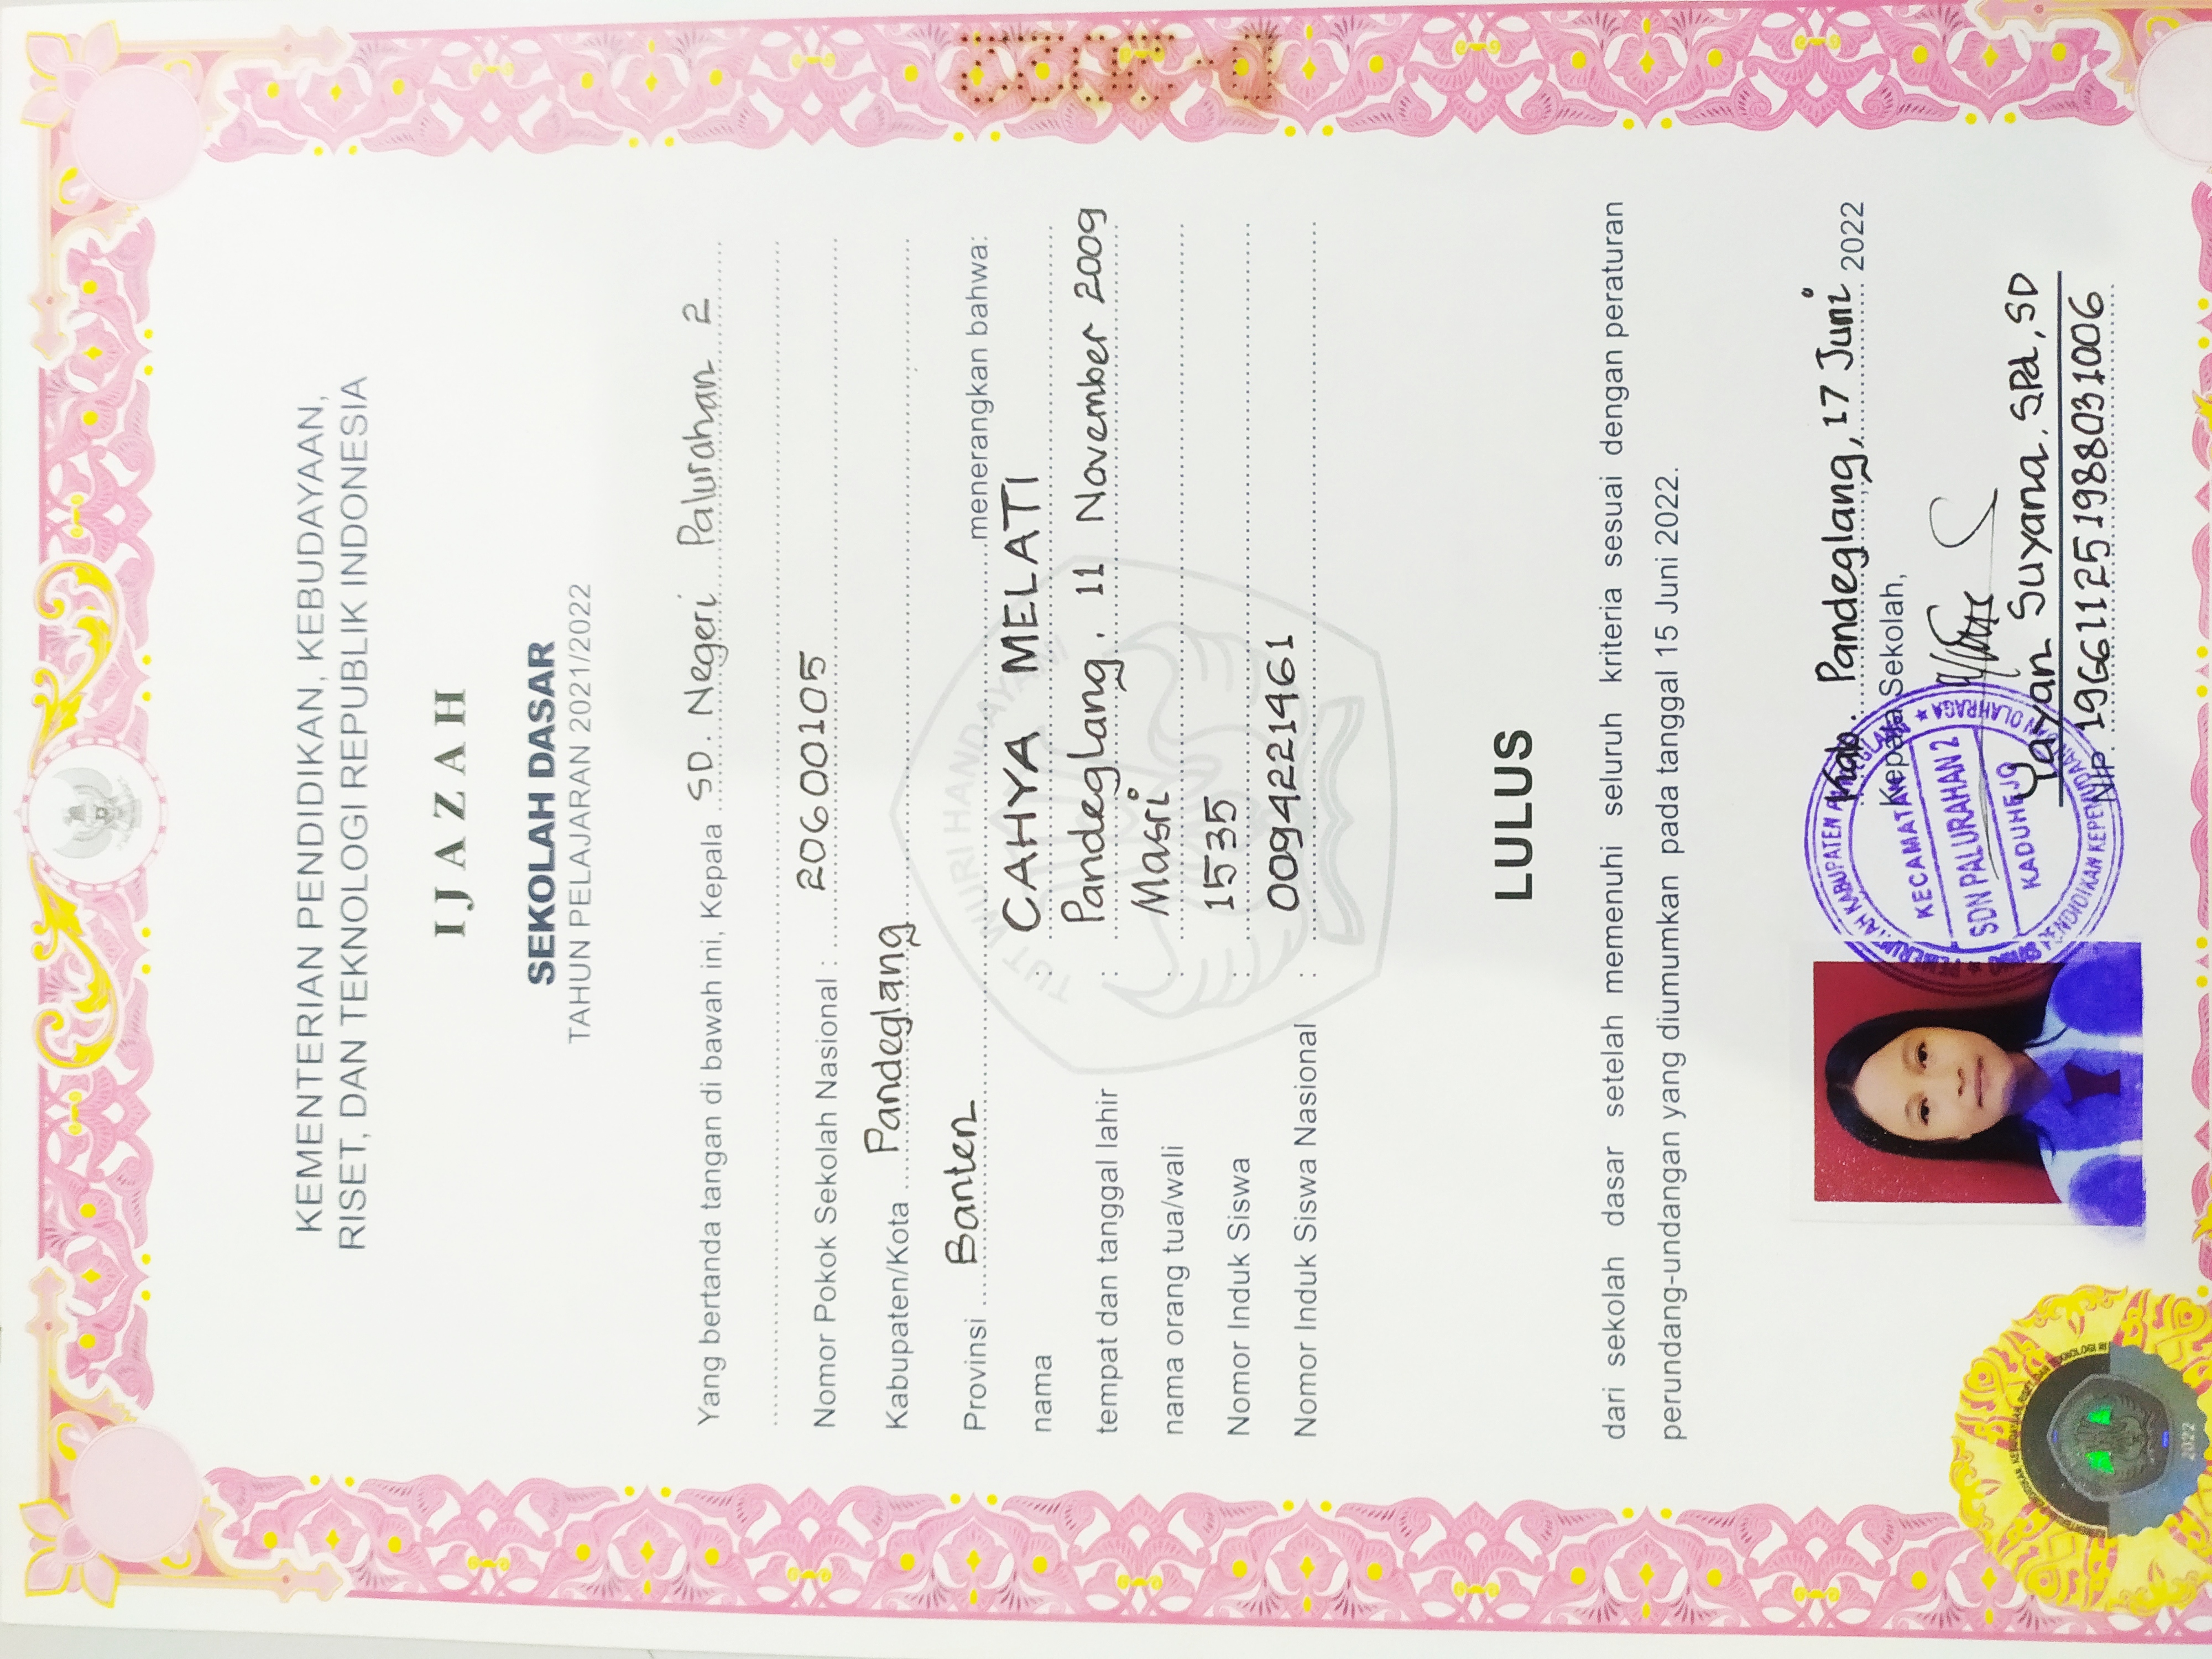 KEMENTERIAN PENDIDIKAN, KEBUDAYAAN,
RISET, DAN TEKNOLOGI REPUBLIK INDONESIA
IJAZAH
SEKOLAH DASAR
TAHUN PELAJARAN 2021/2022
Yang bertanda tangan di bawah ini, Kepala SD. Negeri Palurahan 2
Nomor Pokok Sekolah Nasional : 20600105
Kabupaten/Kota Pandeglang
Provinsi Banten menerangkan bahwa:
TUT WURI HANDAYANI
nama : CAHYA MELATI
tempat dan tanggal lahir : Pandeglang, 11 November 2009
nama orang tua/wali : Masri
Nomor Induk Siswa : 1535
Nomor Induk Siswa Nasional : 0094221461
LULUS
dari sekolah dasar setelah memenuhi seluruh kriteria sesuai dengan peraturan
perundang-undangan yang diumumkan pada tanggal 15 Juni 2022.
Kab. Pandeglang, 17 Juni 2022
Kepala Sekolah,
PEMERINTAH KABUPATEN PANDEGLANG
KECAMATAN
SDN PALURAHAN 2
KADUHEJO
PENDIDIKAN KEPEMUDAAN DAN OLAHRAGA
Yayan Suyana, SPd, SD
NIP. 196611251988031006
2022